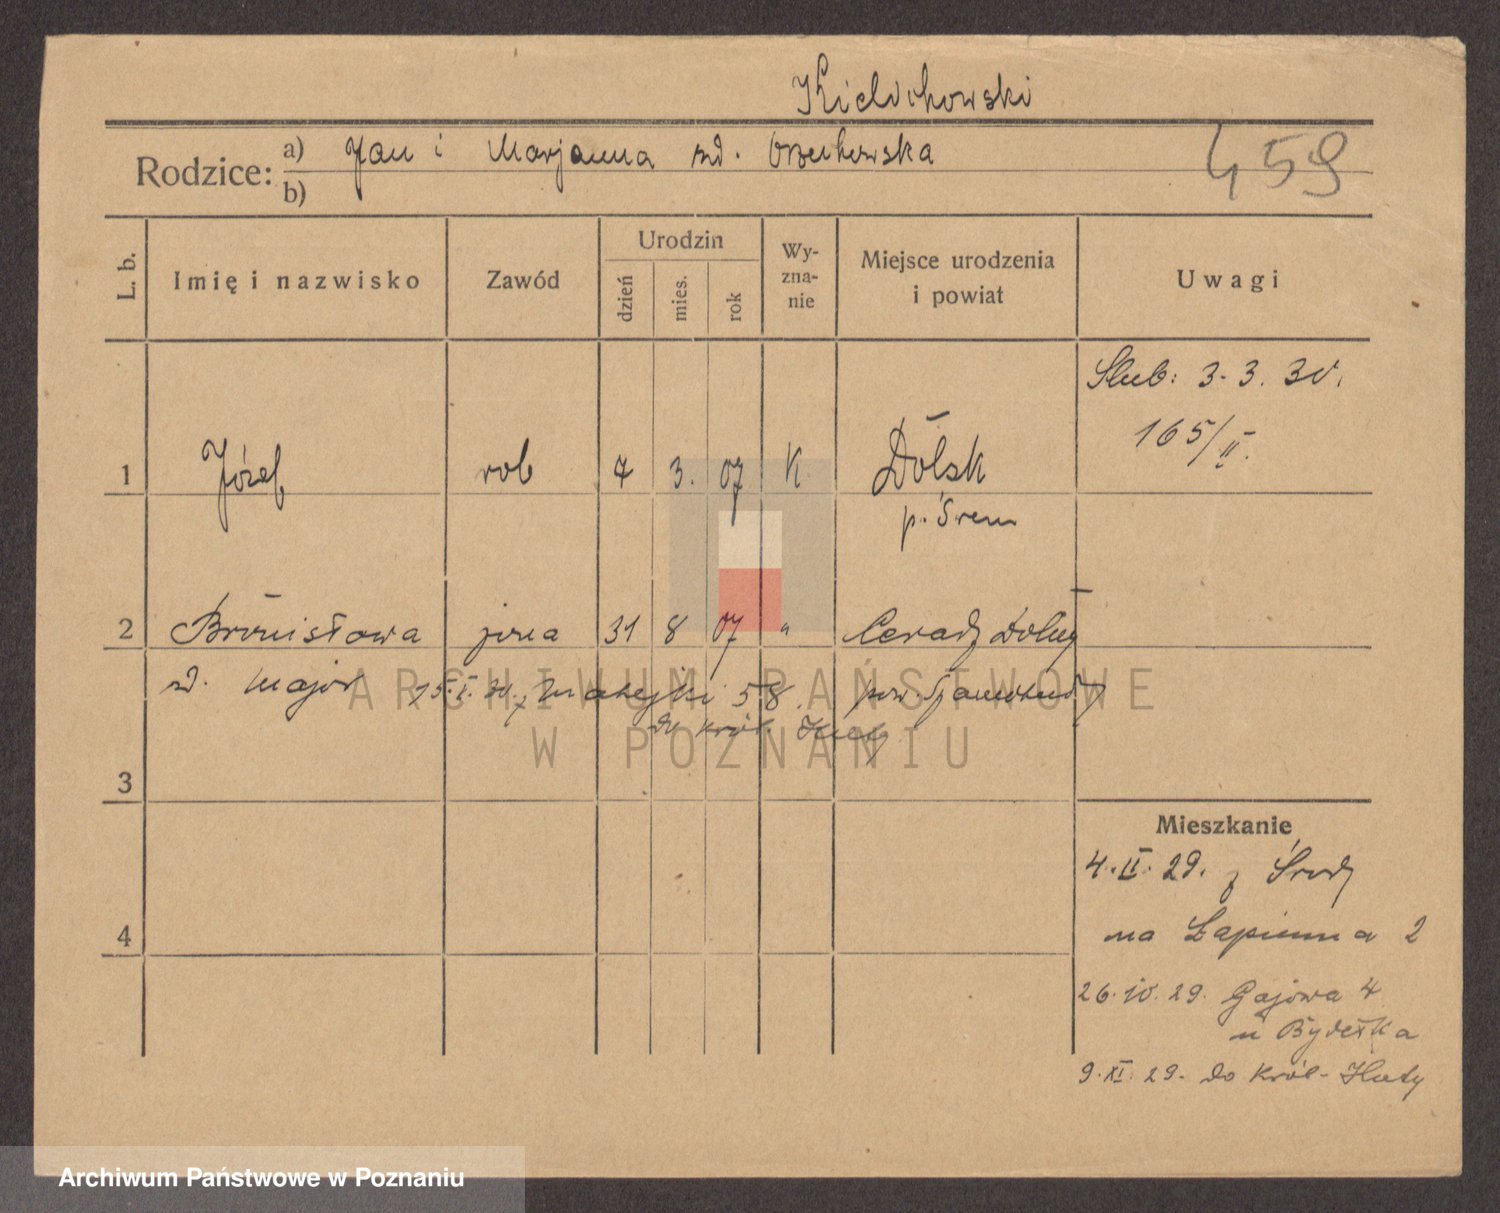 Kielichowski
Rodzice: a) Jan i Marjanna zd. Orzechowska
b)
459
L. b.
Imię i nazwisko
Zawód
Urodzin
dzień
mies.
rok
Wy-
zna-
nie
Miejsce urodzenia
i powiat
Uwagi
Ślub: 3. 3. 30.
165/II.
1 Józef rob 7 3. 07 K Dolsk
p. Śrem
2 Bronisława żona 31 8 07 " Ceradz Dolny
zd. Major 15. I. 30. Matejki 58. pow. Szamotuły
do Król. Huty
3
4
Mieszkanie
4. II. 29. z Środy
na Łapienna 2
26. IV. 29. Gajowa 4
u Bydełka
9. XI. 29. do Król. Huty
ARCHIWUM PAŃSTWOWE
W POZNANIU
Archiwum Państwowe w Poznaniu